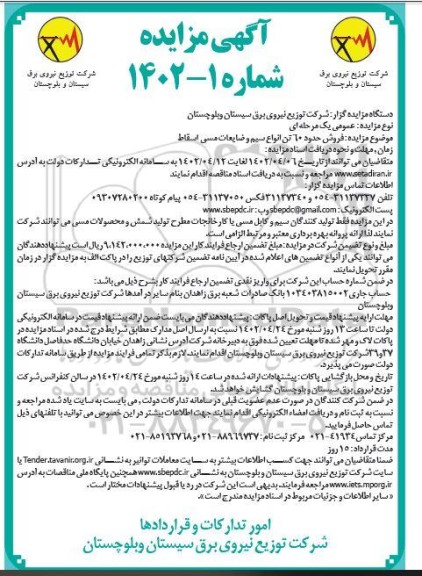 آگهی مزایده
شماره ۱-۱۴۰۲
شرکت توزیع نیروی برق
سیستان و بلوچستان
شرکت توزیع نیروی برق
سیستان و بلوچستان
دستگاه مزایده گزار: شرکت توزیع نیروی برق سیستان وبلوچستان
نوع مزایده: عمومی یک مرحله ای
موضوع مزایده: فروش حدود ۶۰ تن انواع سیم و ضایعات مسی اسقاط
زمان، مهلت و نحوه دریافت اسناد مزایده:
متقاضیان می توانند از تاریخ ۱۴۰۲/۰۴/۰۶ لغایت ۱۴۰۲/۰۴/۱۲ به سامانه الکترونیکی تدارکات دولت به آدرس
www.setadiran.ir مراجعه و نسبت به دریافت اسناد مناقصه اقدام نمایند
اطلاعات تماس مزایده گزار:
تلفن ۳۱۱۳۷۲۳۷-۰۵۴ و ۳۱۱۳۷۳۴۰ فکس ۳۱۱۳۷۰۵۰-۰۵۴ پیام کوتاه ۰۹۳۰۷۲۸۰۲۰۰
پست الکترونیک: sbepdc@gmail.com وب: www.sbepdc.ir
در این مزایده فقط تولید کنندگان سیم و کابل مسی یا کارخانجات مطرح تولید شمش و محصولات مسی می توانند شرکت
نمایند لذا ارائه پروانه بهره برداری معتبر و مرتبط الزامی است.
مبلغ و نوع تضمین شرکت در مزایده: مبلغ تضمین ارجاع فرایند کار این مزایده ۶،۱۴۲،۰۰۰،۰۰۰ ریال است پیشنهاددهندگان
می توانند یکی از انواع تضمین های اعلام شده در آیین نامه تضمین شرکتهای توزیع را در پاکت الف به مزایده گزار در زمان
مقرر تحویل نمایند.
در ضمن شماره حساب این شرکت برای واریز نقدی تضمین ارجاع فرایند کار بشرح ذیل می باشد:
حساب جاری ۰۱۰۳۴۰۲۸۱۵۰۰۲ بانک صادرات شعبه برق زاهدان بنام سایر درآمدها شرکت توزیع نیروی برق سیستان
وبلوچستان
مهلت ارایه پیشنهاد قیمت و تحویل اصل پاکات: پیشنهاددهندگان می بایست ضمن ارائه پیشنهاد قیمت در سامانه الکترونیکی
دولت تا ساعت ۱۳ روز شنبه مورخ ۱۴۰۲/۰۴/۲۴ نسبت به ارسال اصل مدارک مطابق شرایط درج شده در اسناد مزایده در
پاکات لاک و مهر شده تا مهلت تعیین شده فوق به دبیرخانه شرکت آدرس نشانی زاهدان خیابان دانشگاه حدفاصل دانشگاه
۳۷ و۳۹ شرکت توزیع نیروی برق سیستان وبلوچستان اقدام نمایند. لازم بذکر تمامی فرایند مزایده از طریق سامانه تدارکات
دولت صورت می پذیرد.
تاریخ و محل بازگشایی پاکات: پیشنهادات ارائه شده در ساعت ۱۴ روز شنبه مورخ ۱۴۰۲/۰۴/۲۴ در سالن کنفرانس شرکت
توزیع نیروی برق سیستان و بلوچستان گشایش خواهد شد.
در ضمن شرکت کنندگان در صورت عدم عضویت قبلی در سامانه تدارکات دولت، می بایست به سایت یاد شده مراجعه و
نسبت به ثبت نام و دریافت امضاء الکترونیکی اقدام نمایند جهت اطلاعات بیشتر در این خصوص می توانید با تلفنهای ذیل
تماس حاصل فرمایید.
مرکز تماس ۴۱۹۳۴-۰۲۱ مرکز ثبت نام: ۸۸۹۶۹۷۳۷-۰۲۱ و ۸۵۱۹۳۷۶۸-۰۲۱
مدت قرارداد: ۱۵ روز
ضمنا متقاضیان می توانند جهت کسب اطلاعات بیشتر به سایت معاملات توانیر به نشانی Tender.tavanir.org.ir یا
سایت شرکت توزیع نیروی برق سیستان و بلوچستان به نشانی www.sbepdc.ir و همچنین پایگاه ملی مناقصات به آدرس
www.iets.mporg.ir مراجعه فرمایند. بدیهی است این شرکت در رد یا قبول پیشنهادات مختار است.
« سایر اطلاعات و جزئیات مربوط در اسناد مزایده مندرج است».
امور تدارکات و قراردادها
شرکت توزیع نیروی برق سیستان وبلوچستان